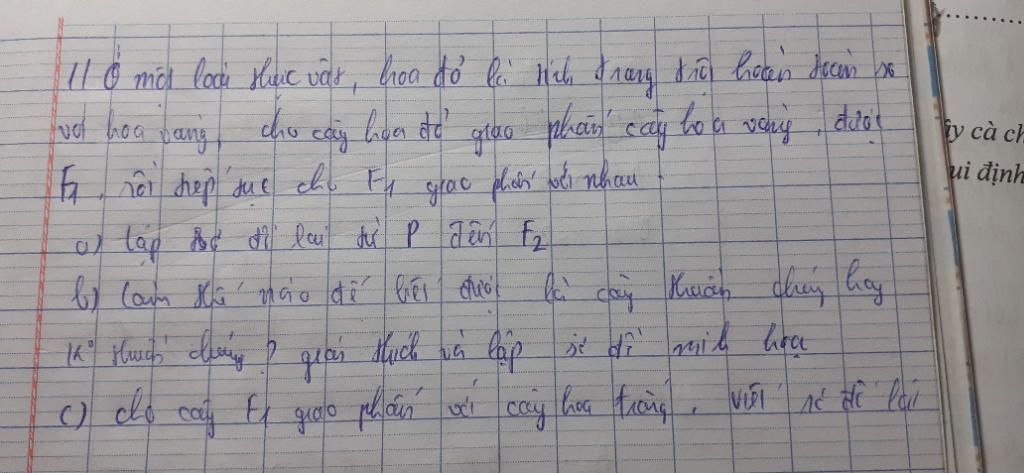 1) Ở một loài thực vật, hoa đỏ là tính trạng trội hoàn toàn so
với hoa vàng, cho cây hoa đỏ giao phấn cây hoa vàng, được
F1, rồi tiếp tục cho F1 giao phấn với nhau
a) lập sơ đồ lai từ P đến F2
b) làm thế nào để biết được là cây thuần chủng hay
K° thuần chủng? giải thích và lập sơ đồ minh họa
c) cho cây F1 giao phấn với cây hoa trắng, viết sơ đồ lai
ấy cà ch
ui định